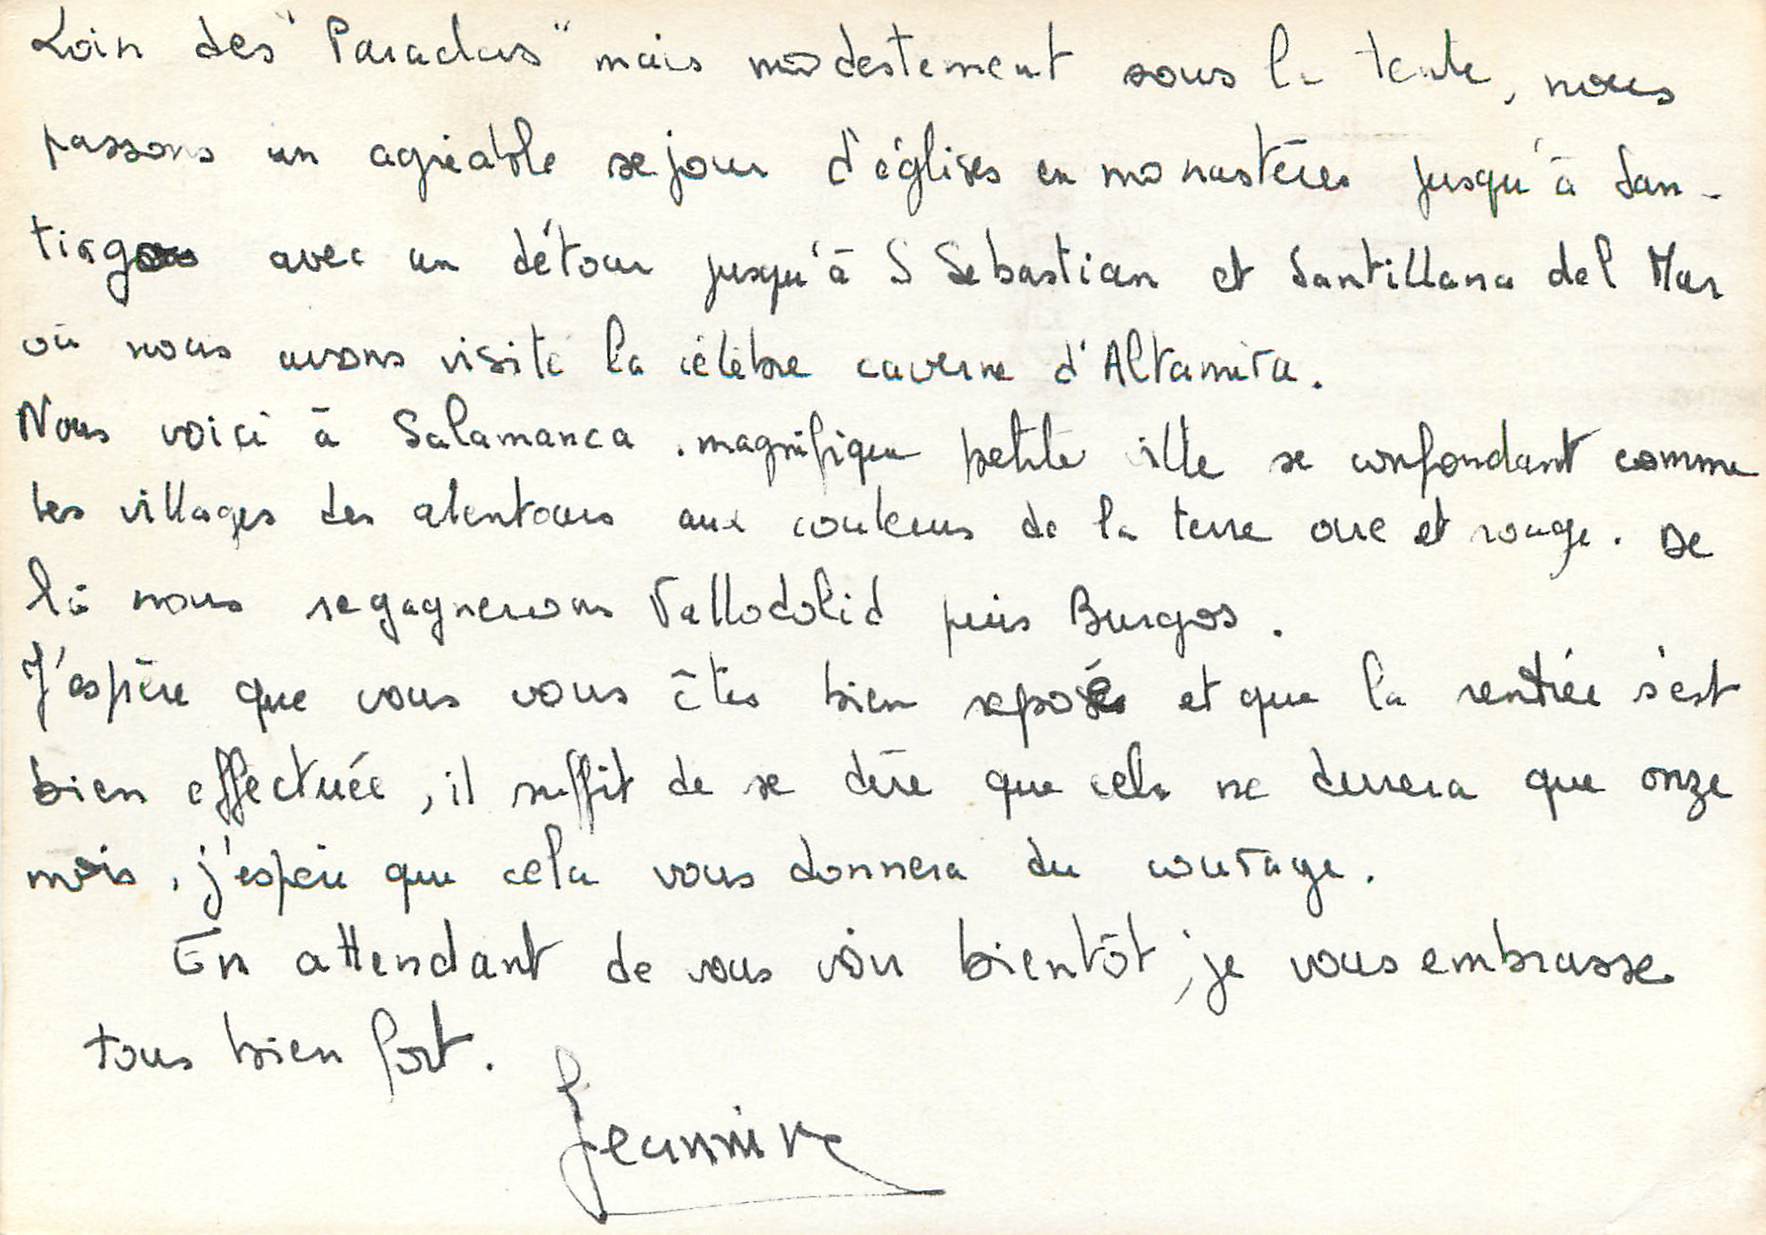 Loin des "Paradors" mais modestement sous la tente, nous
passons un agréable sejour d'églises en monastères jusqu'à San-
tiago avec un détour jusqu'à S Sebastian et Santillana del Mar
où nous avons visité la célèbre caverne d'Altamira.
Nous voici à Salamanca. magnifique petite ville se confondant comme
les villages des alentours aux couleurs de la terre ocre et rouge. De
là nous regagnerons Valladolid puis Burgos.
J'espère que vous vous êtes bien reposés et que la rentrée s'est
bien effectuée, il suffit de se dire que cela ne durera que onze
mois, j'espère que cela vous donnera du courage.
En attendant de vous voir bientôt, je vous embrasse
tous bien fort.
Jeannine